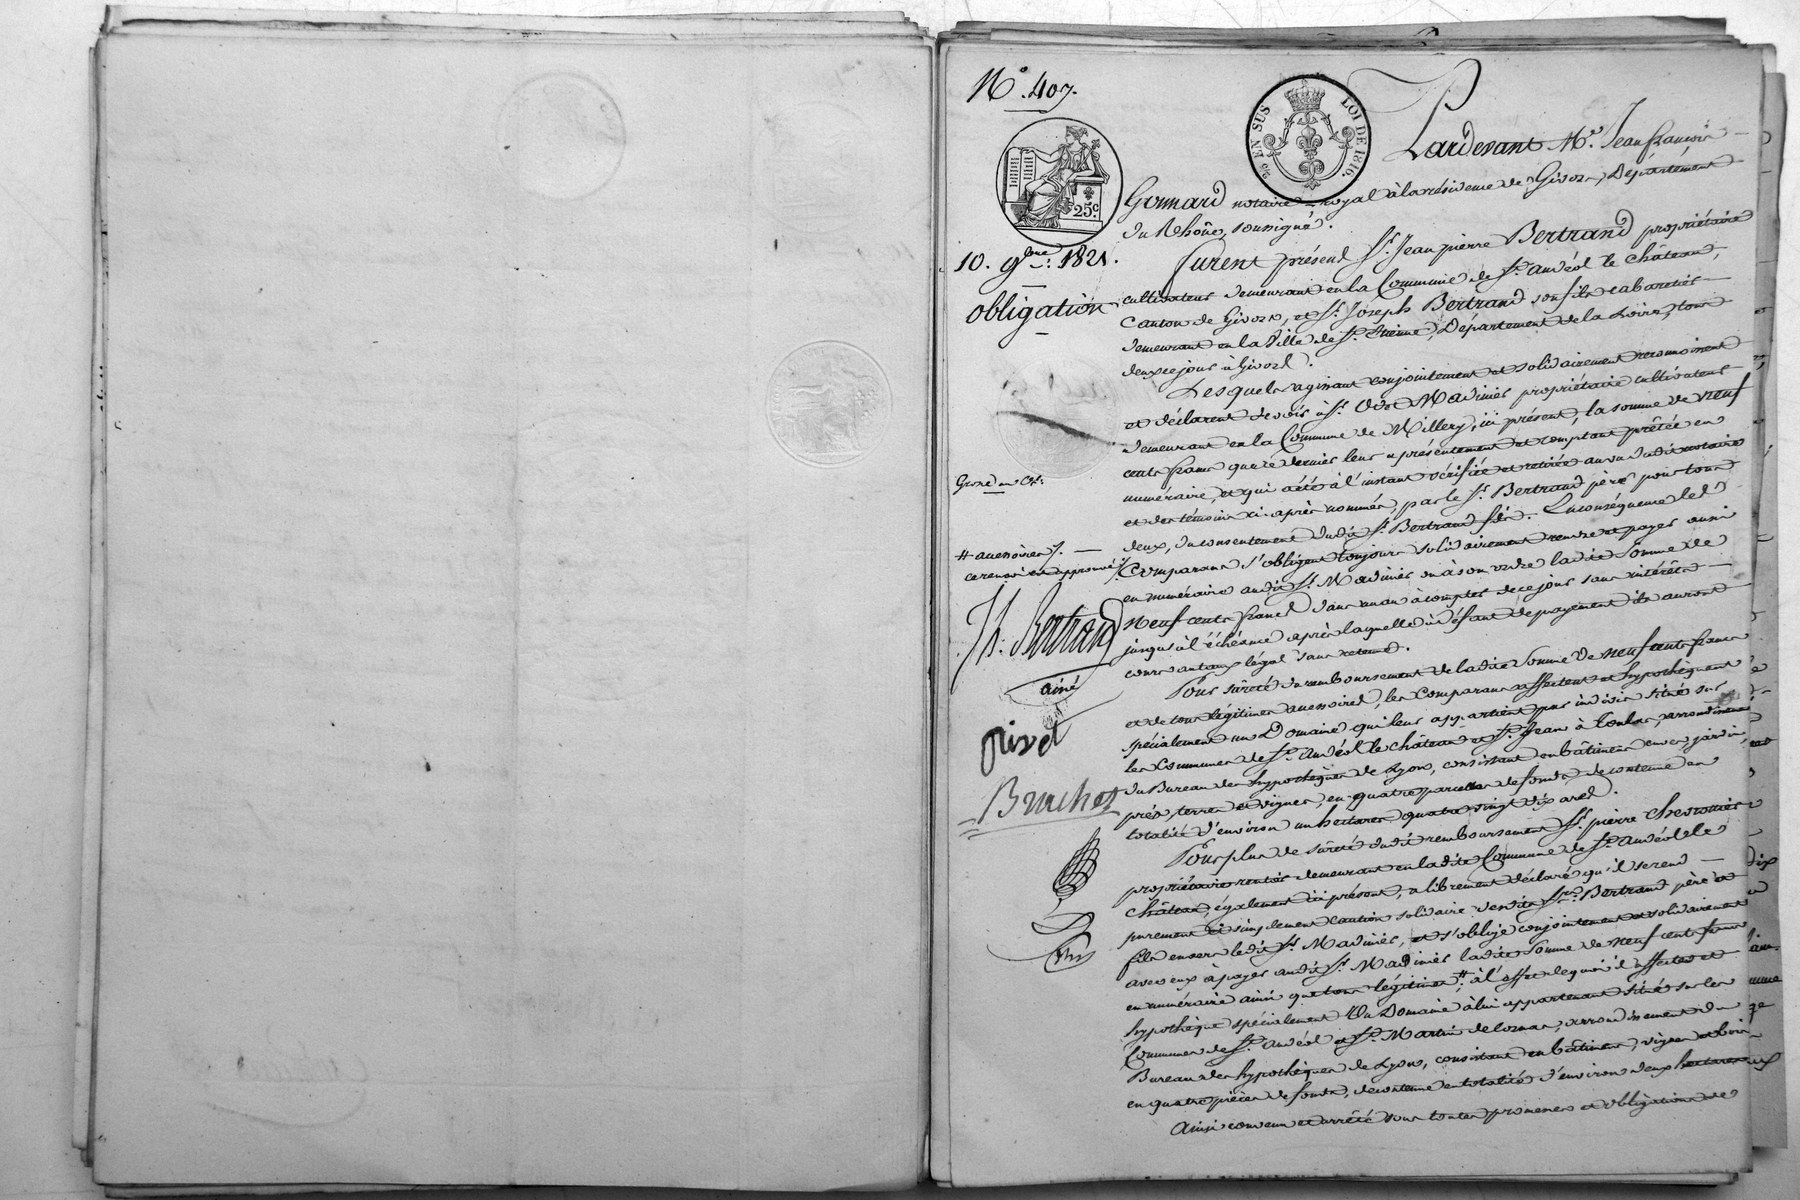 N.° 407.
2/10 EN SUS LOI DE 1816.
25c.
10. 9bre: 1821.
obligation
Grossé au Cr.
# accessoires /. —
ce renvoi est approuvé /.
Jh. Bertrand
ainé
Pardevant Me. Jean françois
Gonnard notaire royal à la résidence de Givors, Département
du Rhône, soussigné.
Furent présens Sr. Jean pierre Bertrand propriétaire
cultivateur demeurant en la Commune de St. andéol le château,
Canton de Givors, et Sr. Joseph Bertrand son fils cabaretier
demeurant en la Ville de St. Etienne, Département de la Loire, tous
deux ce jour à Givors.
Lesquels agissant conjointement et solidairement reconnoissent
et déclarent devoir à Sr. Madinier propriétaire cultivateur
demeurant en la Commune de Millery, ici présent, la somme de neuf
cents francs que ce dernier leur a présentement et comptant prêtée en
numéraire, et qui a été à l'instant vérifiée et retirée au vu dudit notaire
et des témoins ci-après nommés, par le Sr. Bertrand père pour tous
deux, du consentement dudit Sr. Bertrand fils. En conséquence lesd.
Comparans s'obligent toujours solidairement rendre et payer aussi
en numéraire audit Sr. Madinier ou à son ordre ladite Somme de
neuf cents francs dans un an à compter de ce jour sans intérêts
jusqu'à l'échéance après laquelle à défaut de payement ils auront
cours au taux légal sans retenue.
Pour sûreté du remboursement de ladite Somme de neuf cents francs
et de tous légitimes accessoires, les Comparans affectent et hypothèquent
spécialement un Domaine qui leur appartient par indivis situé sur
les Communes de St. andéol le château et St. Jean à Toulas, arrondissement
du Bureau des hypothèques de Lyon, consistant en bâtimens, cour, jardin,
prés, terres et vignes, en quatre parcelles de fonds, de contenue en
totalité d'environ un hectare quatre vingt dix ares.
Pour plus de sûreté dudit remboursement Sr. pierre
propriétaire rentier demeurant en ladite Commune de St. andéol le
château, également ici présent, a librement déclaré qu'il se rend
purement et simplement caution solidaire desdits Srs. Bertrand père et
fils envers ledit Sr. Madinier, et s'oblige conjointement et solidairement
avec eux à payer audit Sr. Madinier ladite somme de neuf cents francs
en numéraire ainsi que tous légitimes # à l'effet de quoi il affecte et
hypothèque spécialement Un Domaine à lui appartenant situé sur les
Communes de St. andéol et St. Martin de Cornas, arrondissement du
Bureau des hypothèques de Lyon, consistant en bâtimens, vignes et bois
en quatre pièces de fonds, de contenue en totalité d'environ deux hectares
Ainsi convenu et arrêté sous toutes promesses et obligations de